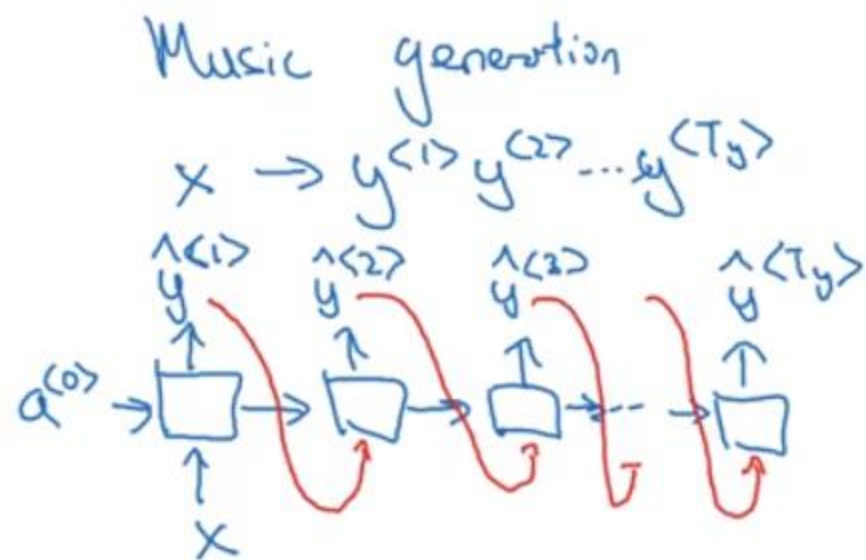 Music generation
x → y<1> y<2> ... y<Ty>
ŷ<1> ŷ<2> ŷ<3> ŷ<Ty>
a<0>
x